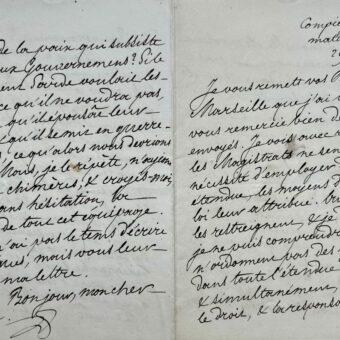 de la paix qui subsiste
eux Gouvernemens? Si le
Sarde vouloit les
ce qu'il ne voudra pas,
qu'il épouloit leur
qu'il se mit en guerre
ce qu'alors nous devrions
Mais, je le répète, n'ayons
chimères, & croyés-moi,
sans hésitation,
de tout cet équivoque.
n'ai pas le tems d'écrire
ques, mais vous leur
ma lettre.
Bonjour, mon cher
Compiè
mate
2
Je vous remett vos
Marseille que j'ai
vous remercie bien de
envoyés. Je vois avec
les Magistrats ne sen
nécessité d'employer
étendue, les moyens d
loi leur attribue.
les restreignent, & je
je ne vous comprend
n'ordonnent pas des
dans toute l'étendue
& simultanément,
le droit, & la responsa